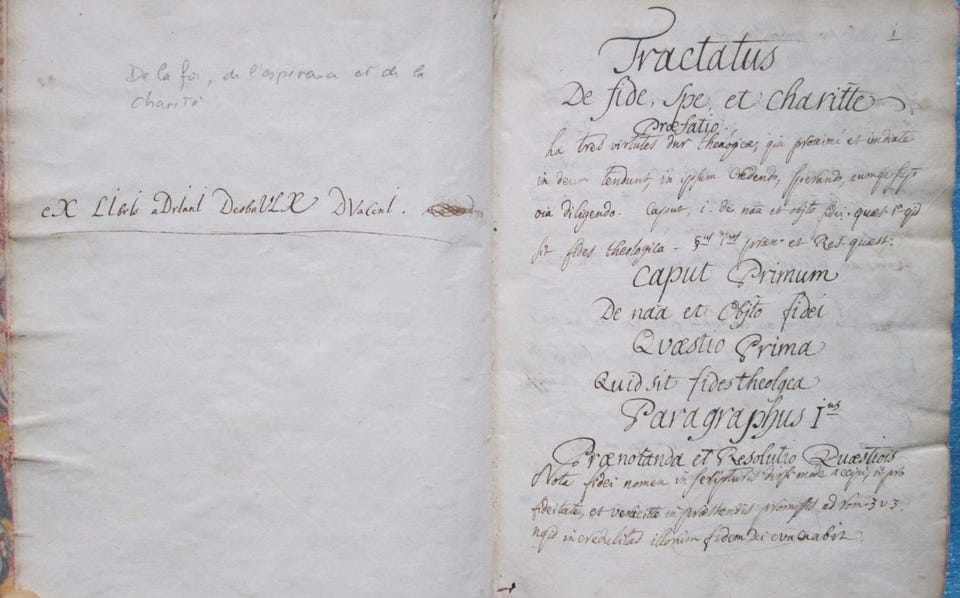 De la foi, de l'espérance et de la
charité
eX LIbrIs aDrIanI DesbaULX DVaCenI.
1
Tractatus
De fide, Spe, et Charitte
Præfatio.
hæ tres virtutes dnr theologicæ, qia proximè et imdiate
in deum tendunt, in ipsum credendo, sperando, eumqe supr
oia diligendo. Caput, 1. de naa et objto fidei. quæst. 1a qid
sit fides theologica - §us 1us præn. et Res. quæst:
Caput Primum
De naa et Objto fidei
Quæstio Prima
Quid sit fides theolgca
Paragraphus Ius
Prænotanda et Resolutio Quæstiois
Nota fidei nomen in scripturis dirsi mode accipi, 1o pro
fidelitate, et veracitte in præstendis promissis ad rom. 3 v. 3.
nqid incredulitas illorum fidem dei evacuabit.